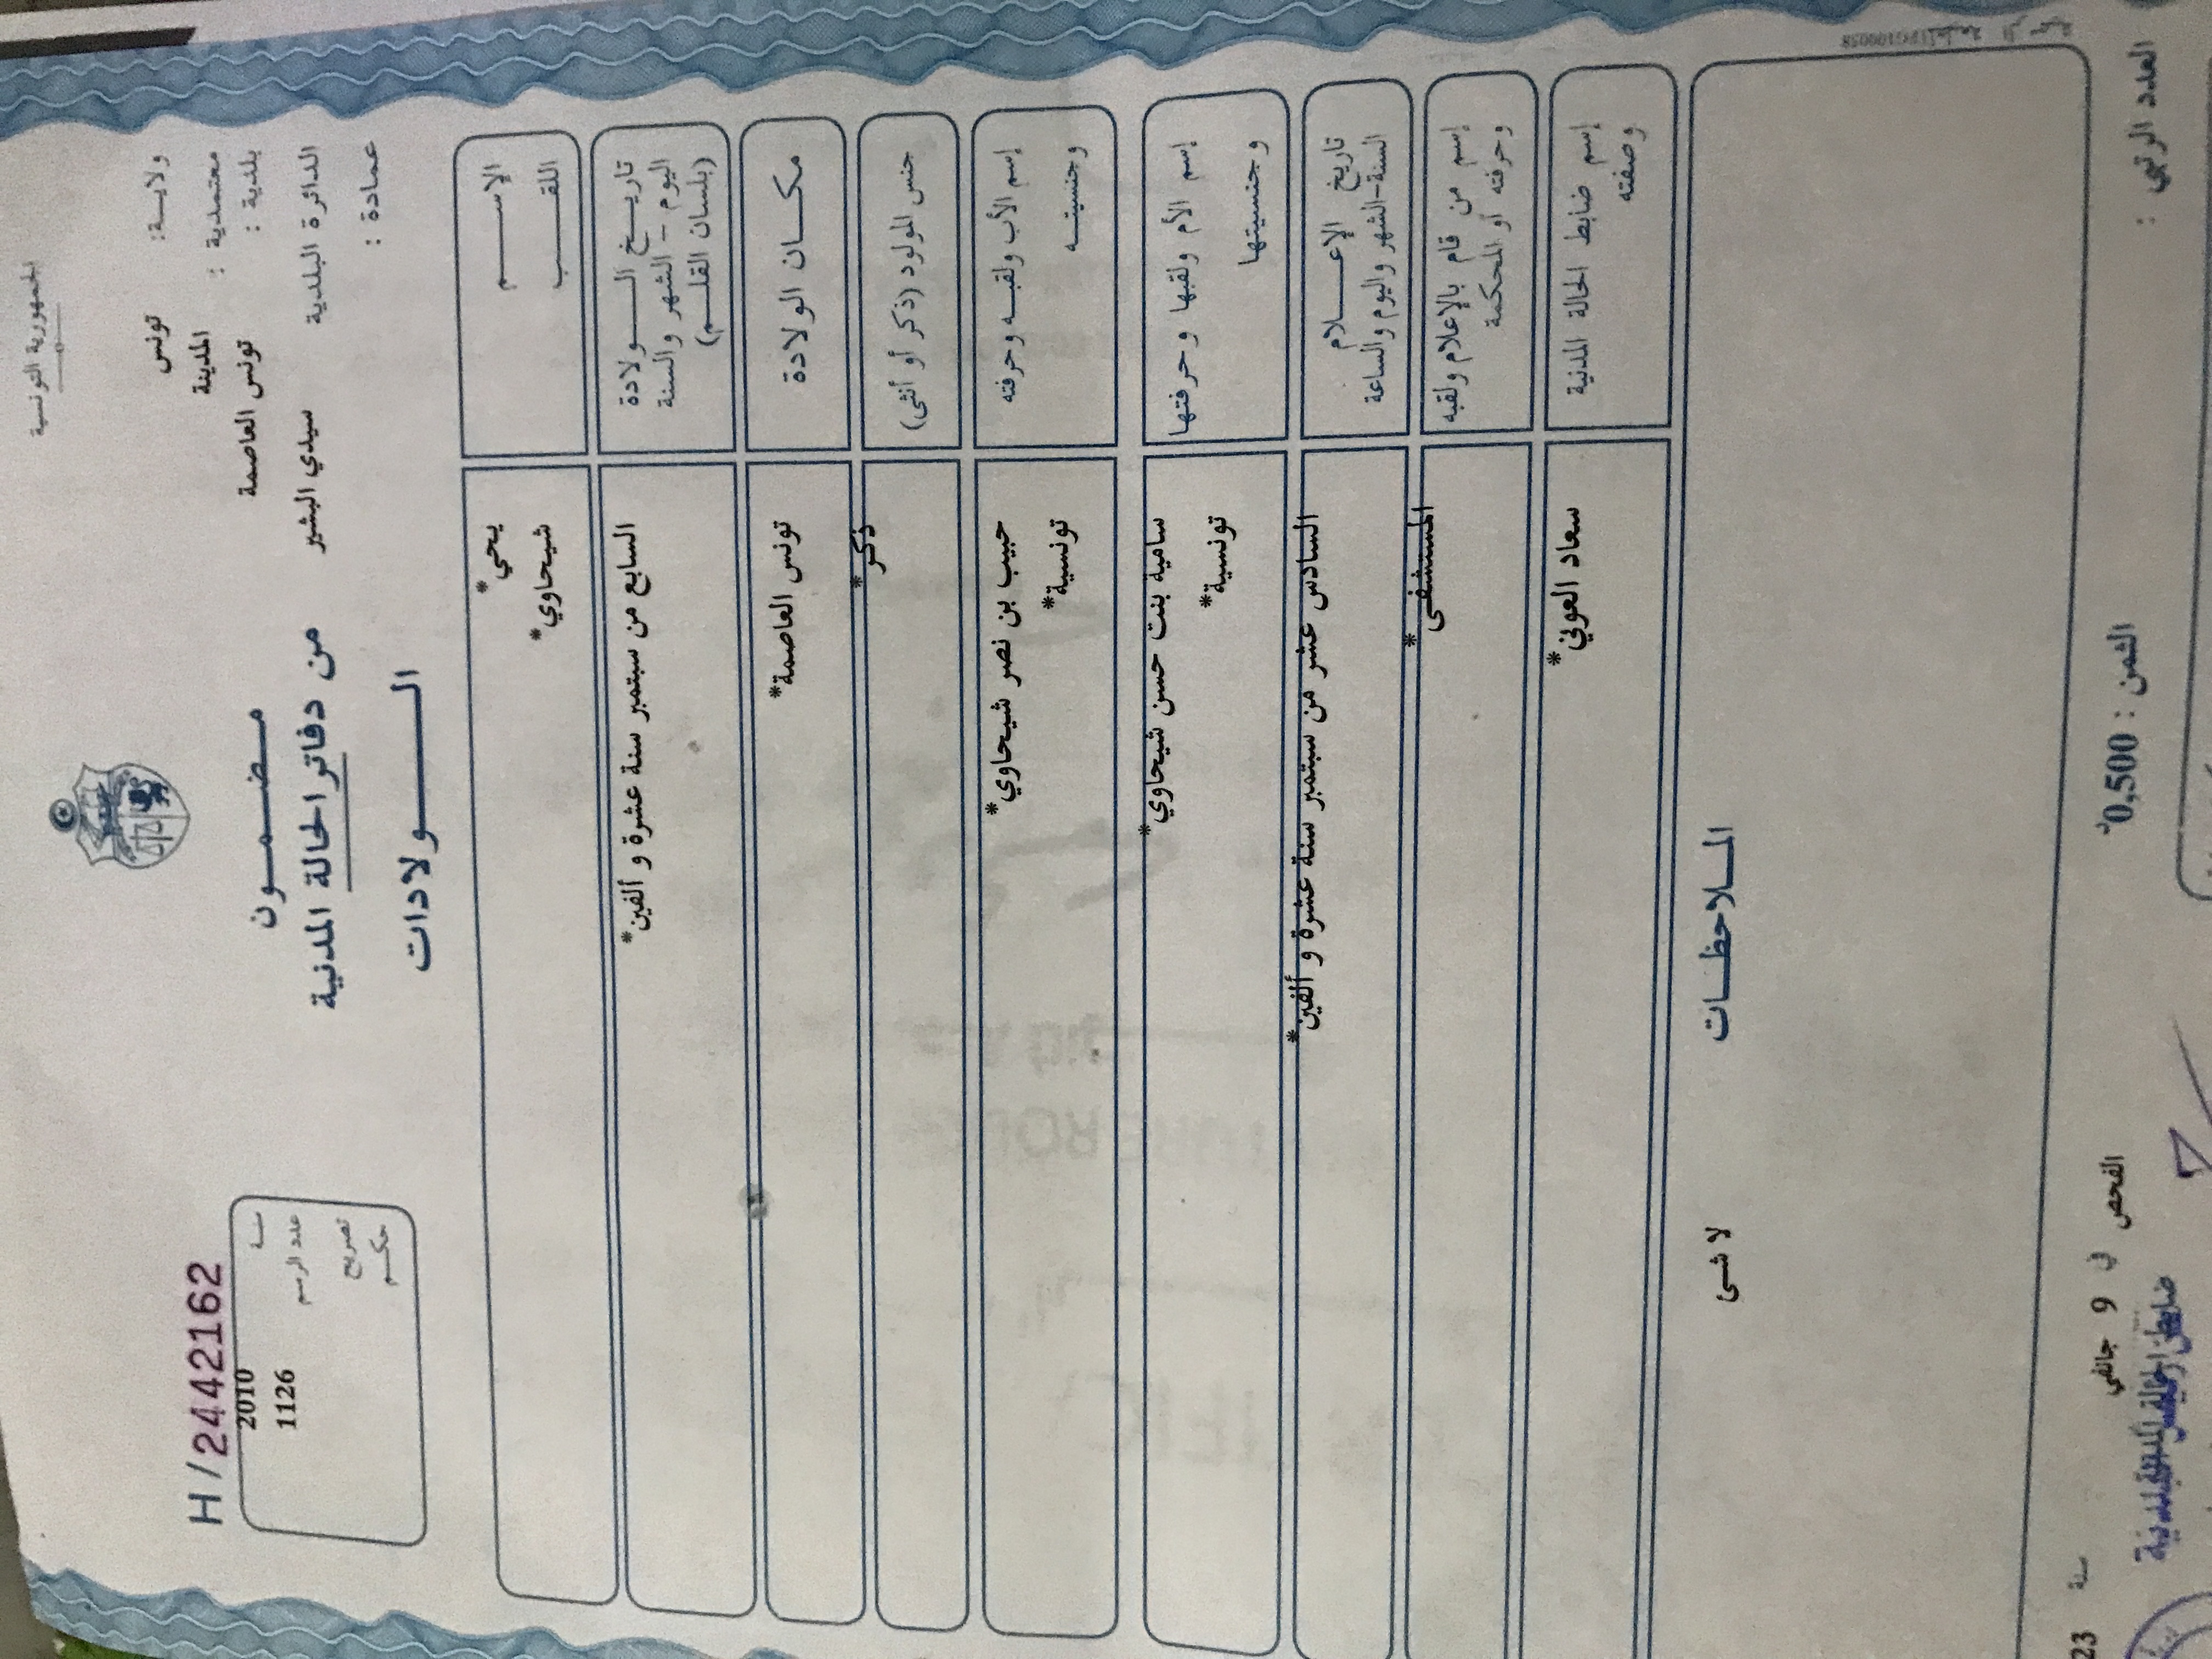 الجمهورية التونسية
ولايـــة: تونس
معتمدية : المدينة
بلدية : تونس العاصمة
الدائرة البلدية سيدي البشير
عمادة :
مـضـمــون
من دفاتر الحالة المدنية
الــــولادات
H/24442162
سنــة 2010
عدد الرسم 1126
تصريح
حكــم
الإســـــم يحيي*
اللقـــــب شيحاوي*
تاريــخ الــــولادة
اليوم – الشهر والسنة
(بلسان القلــم)
السابع من سبتمبر سنة عشرة و ألفين*
مكـــان الولادة تونس العاصمة*
جنس المولود (ذكر أو أنثى) ذكر*
إسم الأب ولقبــه وحرفته حبيب بن نصر شيحاوي*
وجنسيتــه تونسية*
إسم الأم ولقبها وحرفتها سامية بنت حسن شيحاوي*
وجنسيتها تونسية*
تاريخ الإعــــلام
السنة-الشهر واليوم والساعة
السادس عشر من سبتمبر سنة عشرة و ألفين*
إسم من قام بالإعلام ولقبه
وحرفته أو المحكمة
المستشفى*
إسم ضابط الحالة المدنية
وصفته
سعاد العوني*
المــلاحظــات
لا شـى
الفحص في 9 جانفي سنة 23
العدد الرتبي :
الثمن : 0,500د
ضابط الحالة المدنية